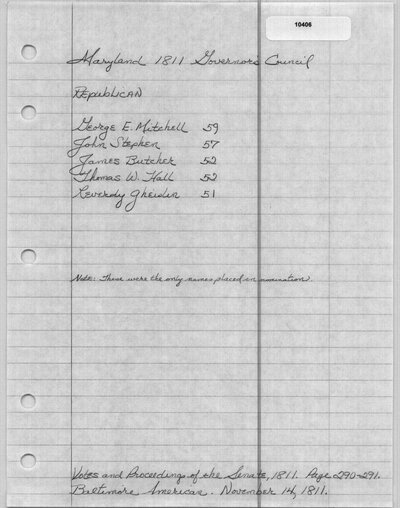 10406
Maryland 1811 Governor's Council
REPUBLICAN
George E. Mitchell 59
John Stephen 57
James Butcher 52
Thomas W. Hall 52
Reverdy Gheislin 51
Note: These were the only names placed in nomination.
Votes and Proceedings of the Senate, 1811. Page 290-291.
Baltimore American. November 14, 1811.